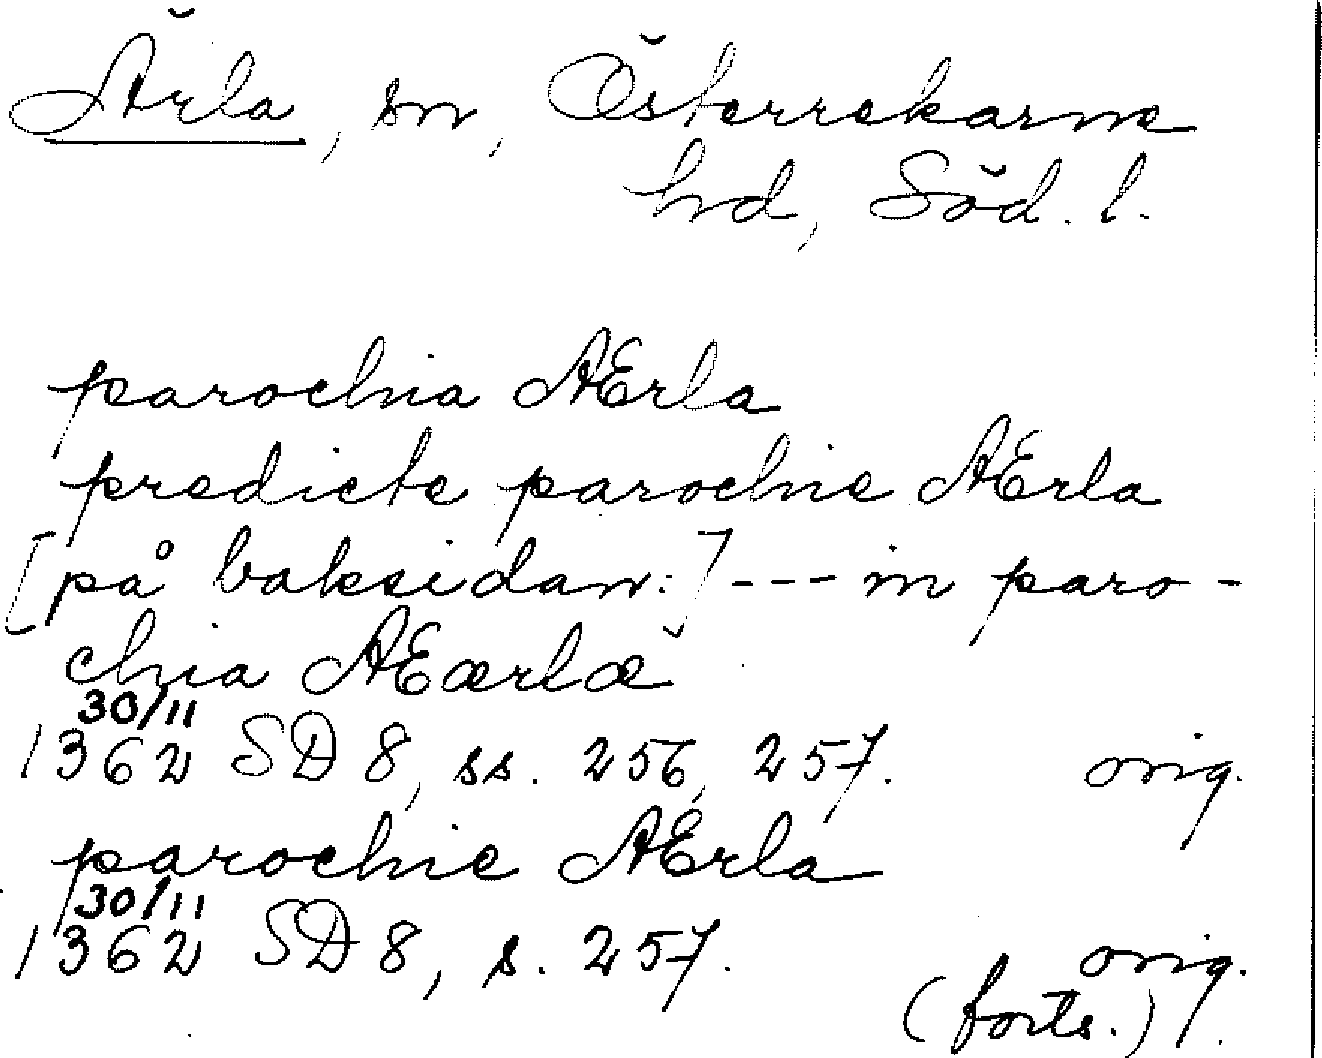 Ärla, sn, Österrekarne
hd, Söd. l.
parochia AErla
predicte parochie AErla
[på baksidan:] --- in paro-
chia AEærlæ
30/11
1362 SD 8, ss. 256, 257. orig.
parochie AErla
30/11
1362 SD 8, s. 257. orig.
(forts.)